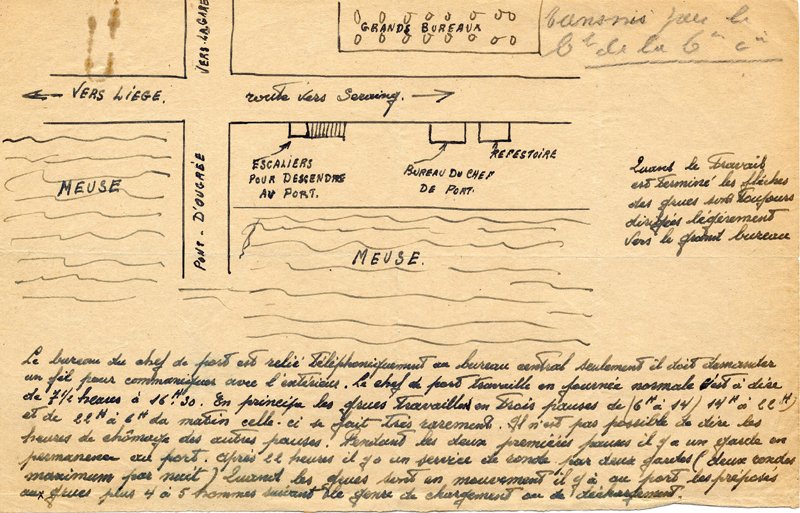 transmis par le
Ct de la 6e Cie
GRANDS BUREAUX
VERS LA GARE
VERS LIEGE.
route vers Seraing.
ESCALIERS
POUR DESCENDRE
AU PORT.
BUREAU DU CHEF
DE PORT.
REFESTOIRE
MEUSE
PONT-D'OUGRÉE
MEUSE.
Quand le travail
est terminé les flèches
des grues sont toujours
dirigées légèrement
vers le grand bureau
Le bureau du chef de port est relié téléphoniquement au bureau central seulement il doit demander
un fil pour communiquer avec l'extérieur. Le chef de port travaille en journée normale c'est à dire
de 7½ heures à 16H30. En principe les grues travaillent en trois pauses de (6H à 14) 14H à 22H)
et de 22H à 6H du matin celle-ci se fait très rarement. Il n'est pas possible de dire les
heures de chômage des autres pauses. Pendant les deux premières pauses il y a un garde en
permanence au port. Après 22 heures il y a un service de ronde par deux gardes (deux rondes
maximum par nuit) Quand les grues sont en mouvement il y a au port les préposés
aux grues plus 4 à 5 hommes suivant le genre de chargement ou de déchargement.